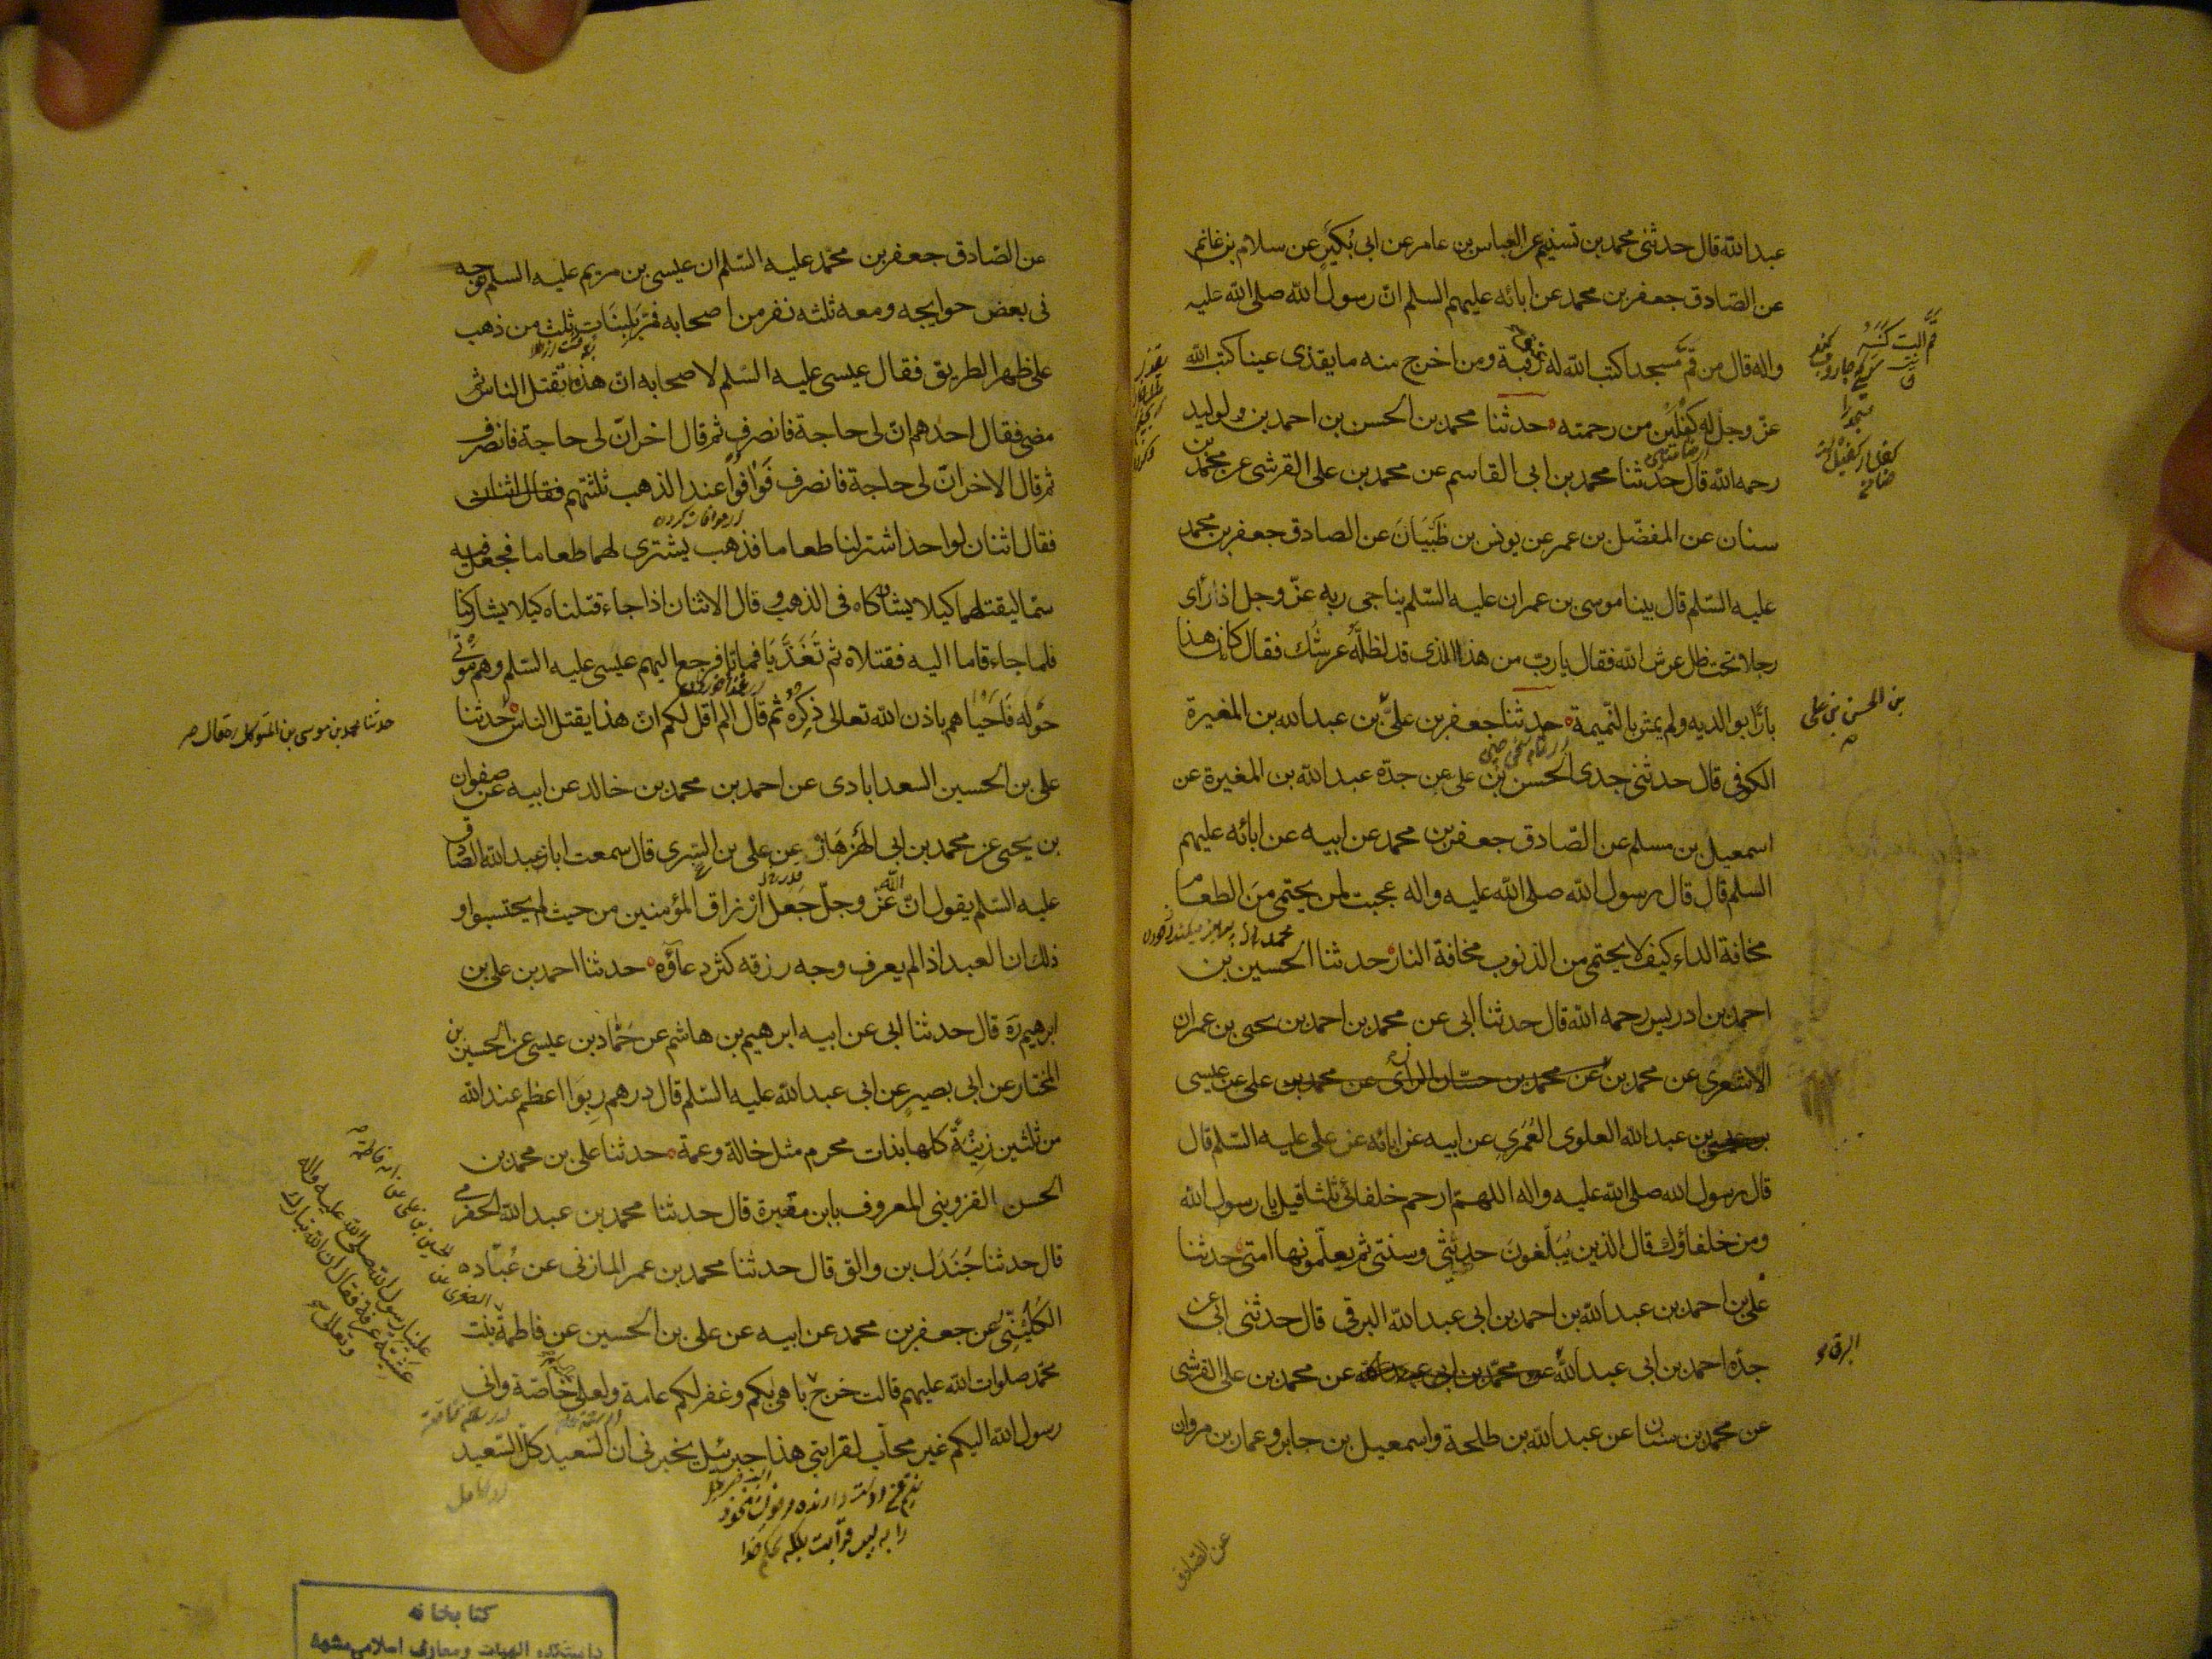 عبد الله قال حدثنى محمد بن تسنيم عن العباس بن عامر عن ابى بكير عن سلام بن غانم
عن الصادق جعفر بن محمد عن ابائه عليهم السلم ان رسول الله صلى الله عليه
واله قال من قم مسجدا كتب الله له عتق رقبة ومن اخرج منه ما يقذى عينا كتب الله
عز وجل له كفلين من رحمته حدثنا محمد بن الحسن بن احمد بن الوليد
رحمه الله قال حدثنا محمد بن ابى القاسم عن محمد بن على القرشى عن محمد بن
سنان عن المفضل بن عمر عن يونس بن ظبيان عن الصادق جعفر بن محمد
عليه السلم قال بينا موسى بن عمران عليه السلم يناجى ربه عز وجل اذ راى
رجلا تحت ظل عرش الله فقال يا رب من هذا الذى قد اظله عرشك فقال كان هذا
بارا بوالديه ولم يمش بالنميمة حدثنا جعفر بن على بن عبد الله بن المغيرة
بن الحسن بن على
الكوفى قال حدثنى جدى الحسن بن على عن جده عبد الله بن المغيرة عن
اسمعيل بن مسلم عن الصادق جعفر بن محمد عن ابيه عن ابائه عليهم
السلم قال قال رسول الله صلى الله عليه واله عجبت لمن يحتمى من الطعام
مخافة الداء كيف لا يحتمى من الذنوب مخافة النار حدثنا الحسين بن
احمد بن ادريس رحمه الله قال حدثنا ابى عن محمد بن احمد بن يحيى بن عمران
الاشعرى عن محمد بن عن محمد بن حسان الرازى عن محمد بن على عن عيسى
بن عبد الله العلوى العمرى عن ابيه عن ابائه عن على عليه السلم قال
قال رسول الله صلى الله عليه واله اللهم ارحم خلفائى ثلثا قيل يا رسول الله
ومن خلفاؤك قال الذين يبلغون حديثى وسنتى ثم يعلمونها امتى حدثنا
على بن احمد بن عبد الله بن احمد بن ابى عبد الله البرقى قال حدثنى ابى عن
جده احمد بن ابى عبد الله عن محمد بن على القرشى
البرقى
عن محمد بن سنان عن عبد الله بن طلحة واسمعيل بن جابر وعمار بن مروان
عن الصادق
عن الصادق جعفر بن محمد عليه السلم ان عيسى بن مريم عليه السلم توجه
فى بعض حوايجه ومعه ثلثه نفر من اصحابه فمر بلبنات ثلث من ذهب
على ظهر الطريق فقال عيسى عليه السلم لاصحابه ان هذه تقتل الناس ثم
مضى فقال احدهم ان لى حاجة فانصرف ثم قال اخر ان لى حاجة فانصرف
ثم قال الاخر ان لى حاجة فانصرف فوافوا عند الذهب ثلثتهم فقال اثنان
فقال اثنان لواحد اشتر لنا طعاما فذهب يشترى لهما طعاما فجعل فيه
سما ليقتلهما كيلا يشاركاه فى الذهب وقال الاثنان اذا جاء قتلناه كيلا يشاركنا
فلما جاء قاما اليه فقتلاه ثم تغديا فماتا فرجع اليهم عيسى عليه السلم وهم موتى
حوله فاحياهم باذن الله تعالى ذكره ثم قال الم اقل لكم ان هذا يقتل الناس حدثنا
حدثنا محمد بن موسى بن المتوكل
على بن الحسين السعدابادى عن احمد بن محمد بن خالد عن ابيه عن صفوان
بن يحيى عن محمد بن ابى الهزهاز عن على بن السرى قال سمعت ابا عبد الله الصادق
عليه السلم يقول ان الله عز وجل جعل ارزاق المؤمنين من حيث لم يحتسبوا و
ذلك ان العبد اذا لم يعرف وجه رزقه كثر دعاؤه حدثنا احمد بن على بن
ابرهيم ره قال حدثنا ابى عن ابيه ابرهيم بن هاشم عن حماد بن عيسى عن الحسين بن
المختار عن ابى بصير عن ابى عبد الله عليه السلم قال درهم ربوا اعظم عند الله
من ثلثين زنية كلها بذات محرم مثل خالة وعمة حدثنا على بن محمد بن
الحسن القزوينى المعروف بابن مقبرة قال حدثنا محمد بن عبد الله الحضرمى
قال حدثنا جندل بن والق قال حدثنا محمد بن عمر المازنى عن عباده
الكليبى عن جعفر بن محمد عن ابيه عن على بن الحسين عن فاطمة بنت
الصغرى عن الحسين بن على عن امه فاطمة
محمد صلوات الله عليهم قالت خرج باهى بكم وغفر لكم عامة ولعلى خاصة وانى
علينا رسول الله صلى الله عليه واله
عشية عرفة فقال ان الله تبارك
وتعالى
رسول الله اليكم غير محاب لقرابتى هذا جبرئيل يخبرنى ان السعيد كل السعيد
كتابخانه
دانشكده الهيات ومعارف اسلامى مشهد